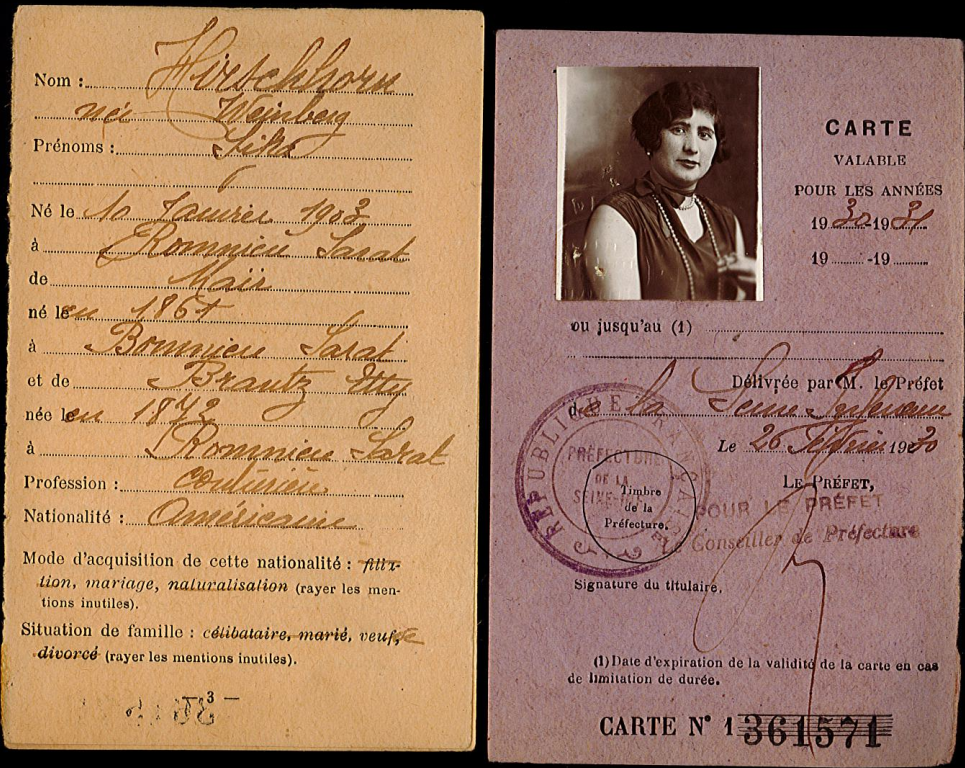 Nom : Hirschhorn
née Weinberg
Prénoms :
Né le 10 Janvier 1903
à Romnicu Sarat
de Maïr
né le en 1867
à Romnicu Sarat
et de Brautz Etty
née le en 1872
à Romnicu Sarat
Profession : couturière
Nationalité : Américaine
Mode d'acquisition de cette nationalité : filia-
tion, mariage, naturalisation (rayer les men-
tions inutiles).
Situation de famille : célibataire, marié, veuf,ve
divorcé (rayer les mentions inutiles).
3 —
CARTE
VALABLE
POUR LES ANNÉES
1930-1931
19 -19
ou jusqu'au (1)
Délivrée par M. le Préfet
de la Seine
Le 26 Février 1930
LE PRÉFET,
POUR LE PRÉFET
Le Conseiller de Préfecture
RÉPUBLIQUE FRANÇAISE
PRÉFECTURE
DE LA
SEINE
Timbre
de la
Préfecture.
Signature du titulaire,
(1) Date d'expiration de la validité de la carte en cas
de limitation de durée.
CARTE N° 1 361571